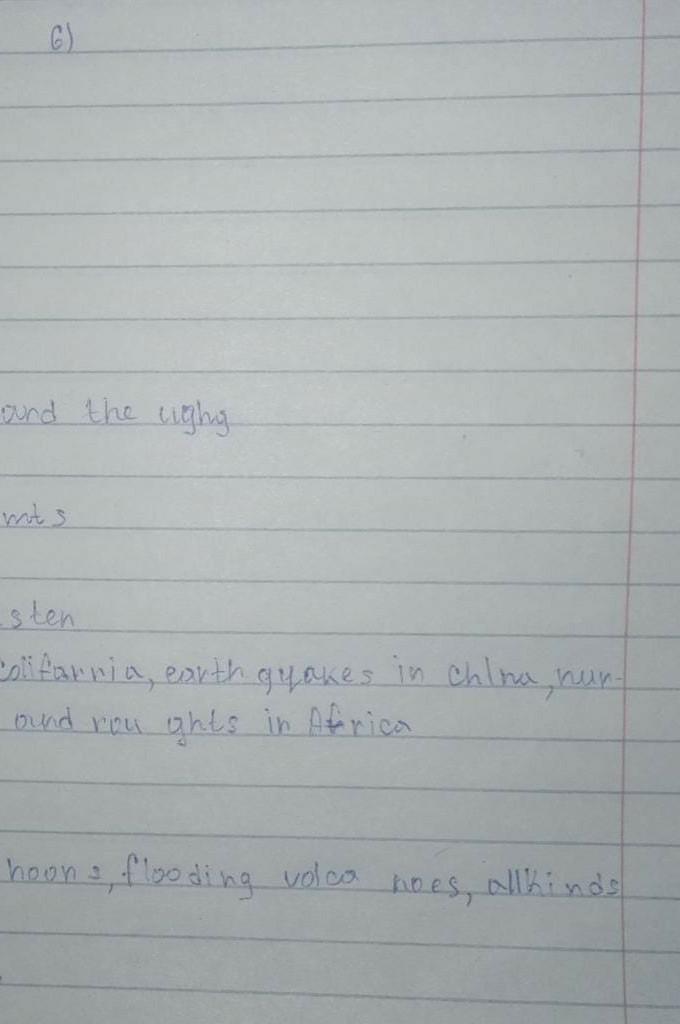 6)
and the ughy
mts
sten
Colifarria, earth quakes in chlna, nur-
and rou ghts in Africa
hoons, flooding volca noes, allkinds